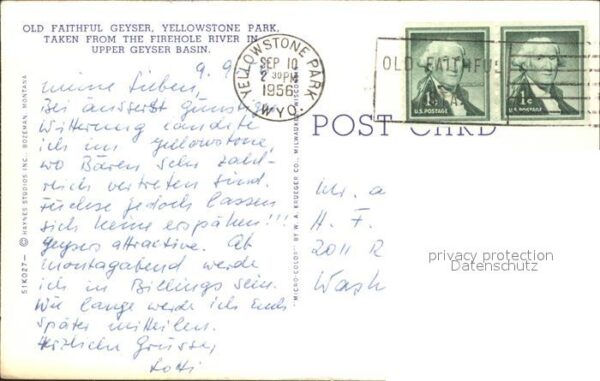 OLD FAITHFUL GEYSER, YELLOWSTONE PARK,
TAKEN FROM THE FIREHOLE RIVER IN
UPPER GEYSER BASIN.
9. 9.
meine Lieben,
Bei äusserst günstiger
Witterung landete
ich im Yellowstone,
wo Bären sehr zahl-
reich vertreten sind.
Füchse jedoch lassen
sich keine erspähen!!!
Geysers attractive. Ab
montagabend werde
ich in Billings sein.
Wie lange werde ich Euch
später mitteilen.
Herzliche Grüsse,
Lotti
51K027- © HAYNES STUDIOS INC. BOZEMAN, MONTANA
"MICRO-COLOR" BY W. A. KRUEGER CO., MILWAUKEE, WISCONS
YELLOWSTONE PARK,
SEP 10
2 30PM
1956
WYO.
OLD FAITHFUL
1¢
U.S. POSTAGE
1¢
U.S. POSTAGE
POST CARD
Mr. a
H. F.
2011 R
Wash
privacy protection
Datenschutz